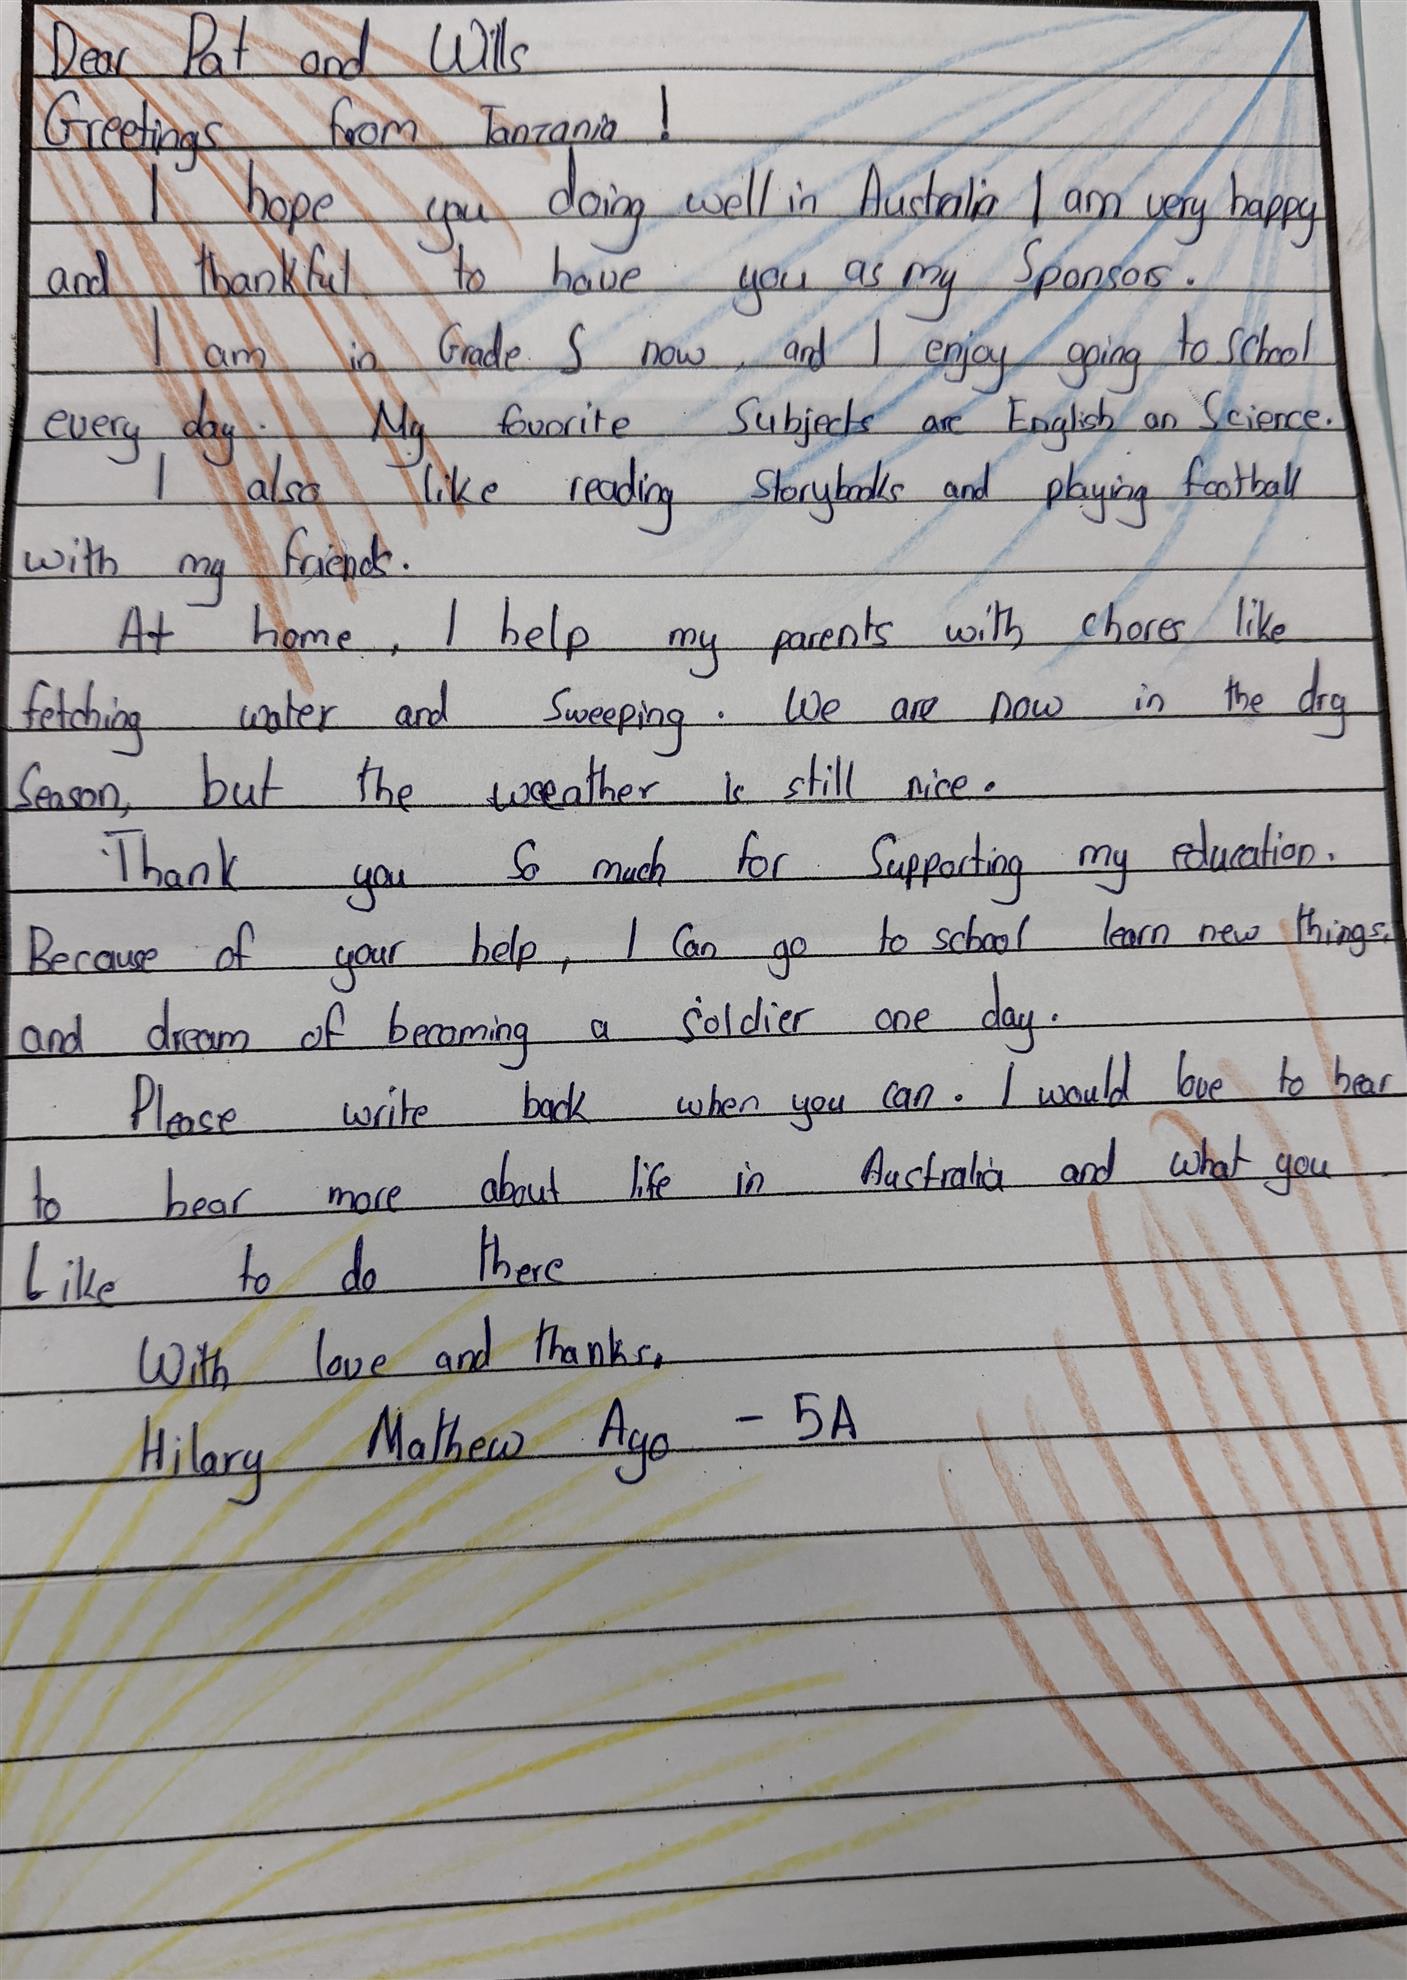 Dear Pat and Wills
Greetings from Tanzania !
I hope you doing well in Australia I am very happy
and thankful to have you as my Sponsors.
I am in Grade 5 now, and I enjoy going to school
every day. My favorite Subjects are English an Science.
I also like reading Storybooks and playing football
with my friends.
At home, I help my parents with chores like
fetching water and Sweeping. We are now in the dry
Season, but the weather is still nice.
Thank you So much for Supporting my education.
Because of your help, I Can go to school learn new things.
and dream of becoming a soldier one day.
Please write back when you can. I would love to hear
to hear more about life in Australia and what you
Like to do there
With love and thanks,
Hilary Mathew Ayo - 5A